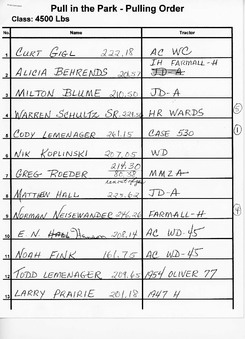 Pull in the Park - Pulling Order
Class: 4500 Lbs
Name Tractor
1 CURT GIGL 222.18 AC WC
2 ALICIA BEHRENDS 201.57 IH FARMALL-H JD-A
3 MILTON BLUME 210.50 JD-A
4 WARREN SCHULTZ SR. HR WARDS ⑤
5 CODY LEMENAGER 261.15 CASE 530 ①
6 NIK KOPLINSKI 207.05 WD
214.30
7 GREG ROEDER 80.38 MM ZA
8 MATTHEW HALL 223.62 JD-A
9 NORMAN NEISEWANDER 246.26 FARMALL-H ④
10 E.N. HALL Hanson 208.14 AC WD-45
11 NOAH FINK 161.75 AC WD-45
12 TODD LEMENAGER 209.65 1954 OLIVER 77
13 LARRY PRAIRIE 201.18 1947 H